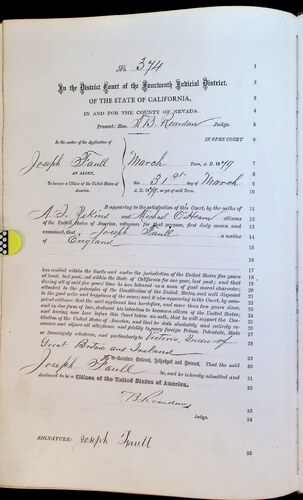 No. 374
In the District Court of the Fourteenth Judicial District,
OF THE STATE OF CALIFORNIA,
IN AND FOR THE COUNTY OF NEVADA.
Present: Hon. T. B. Reardan Judge.
In the matter of the Application of
IN OPEN COURT
Joseph Faull
March Term, A. D. 1879
AN ALIEN,
To become a Citizen of the United States of America.
this 31st day of March
A. D. 1879, as yet of said Term.
It appearing to the satisfaction of this Court, by the oaths of
and Michael citizens
of the United States of America, witnesses for that purpose, first duly sworn and
examined, that Joseph Faull a native
of England
has resided within the limits and under the jurisdiction of the United States five years
at least, last past, and within the State of California for one year, last past; and that
during all of said five years' time he has behaved as a man of good moral character,
attached to the principles of the Constitution of the United States, and well disposed
to the good order and happiness of the same; and it also appearing to the Court, by
evidence, that the said applicant has heretofore, and more than two years since,
and in due form of law, declared his intention to become a citizen of the United States,
and having now here before this Court taken an oath, that he will support the Constitution
of the United States of America, and that he doth absolutely and entirely renounce
and abjure all allegiance and fidelity to every foreign Prince, Potentate, State
or Sovereignty whatever, and particularly to Victoria, Queen of
Great Britain and Ireland
It is therefore Ordered, Adjudged and Decreed, That the said
Joseph Faull be, and he is hereby admitted and
declared to be a Citizen of the United States of America.
T. B. Reardan
Judge.
SIGNATURE: Joseph Faull